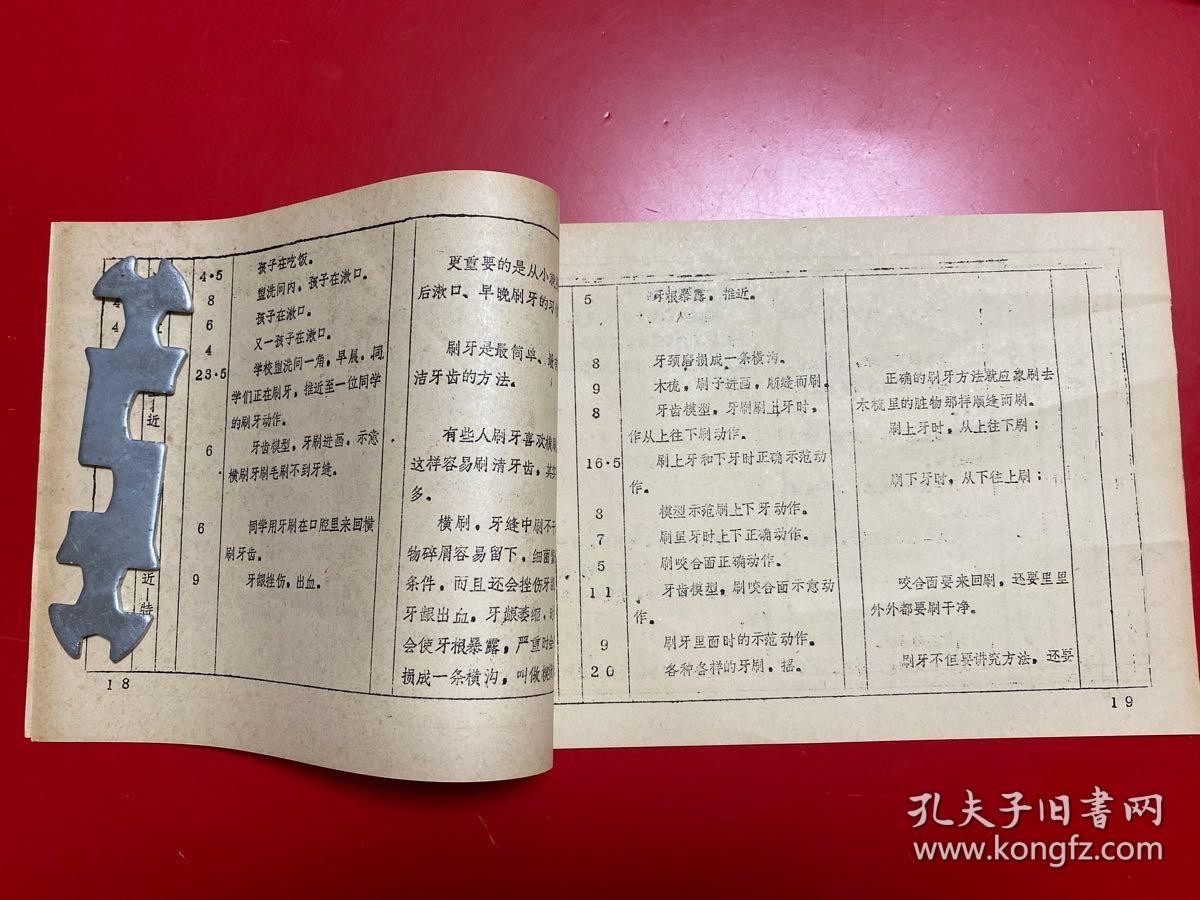 4·5
孩子在吃饭。
8
盥洗间内，孩子在漱口。
6
孩子在漱口。
4
又一孩子在漱口。
23·5
学校盥洗间一角，早晨，同
学们正在刷牙，推近至一位同学
的刷牙动作。
6
牙齿模型，牙刷进画，示意
横刷牙刷毛刷不到牙缝。
6
同学用牙刷在口腔里来回横
刷牙齿。
9
牙龈挫伤，出血。
近
近—特
更重要的是从小
后漱口、早晚刷牙的习
刷牙是最简单、最
洁牙齿的方法。
有些人刷牙喜欢横
这样容易刷清牙齿，其
多。
横刷，牙缝中刷不
物碎屑容易留下，细菌
条件。而且还会挫伤牙
牙龈出血。牙龈萎缩，
会使牙根暴露，严重时
损成一条横沟，叫做
18
5
牙根暴露，推近。
8
牙颈磨损成一条横沟。
9
木梳，刷子进画，顺缝而刷。
8
牙齿模型，牙刷刷上牙时，
作从上往下刷动作。
16·5
刷上牙和下牙时正确示范动
作。
3
模型示范刷上下牙动作。
7
刷里牙时上下正确动作。
5
刷咬合面正确动作。
11
牙齿模型，刷咬合面示意动
作。
9
刷牙里面时的示范动作。
20
各种各样的牙刷，摇。
正确的刷牙方法就应象刷去
木梳里的脏物那样顺缝而刷。
刷上牙时，从上往下刷；
刷下牙时，从下往上刷；
咬合面要来回刷，还要里里
外外都要刷干净。
刷牙不但要讲究方法，还要
19
孔夫子旧书网
www.kongfz.com